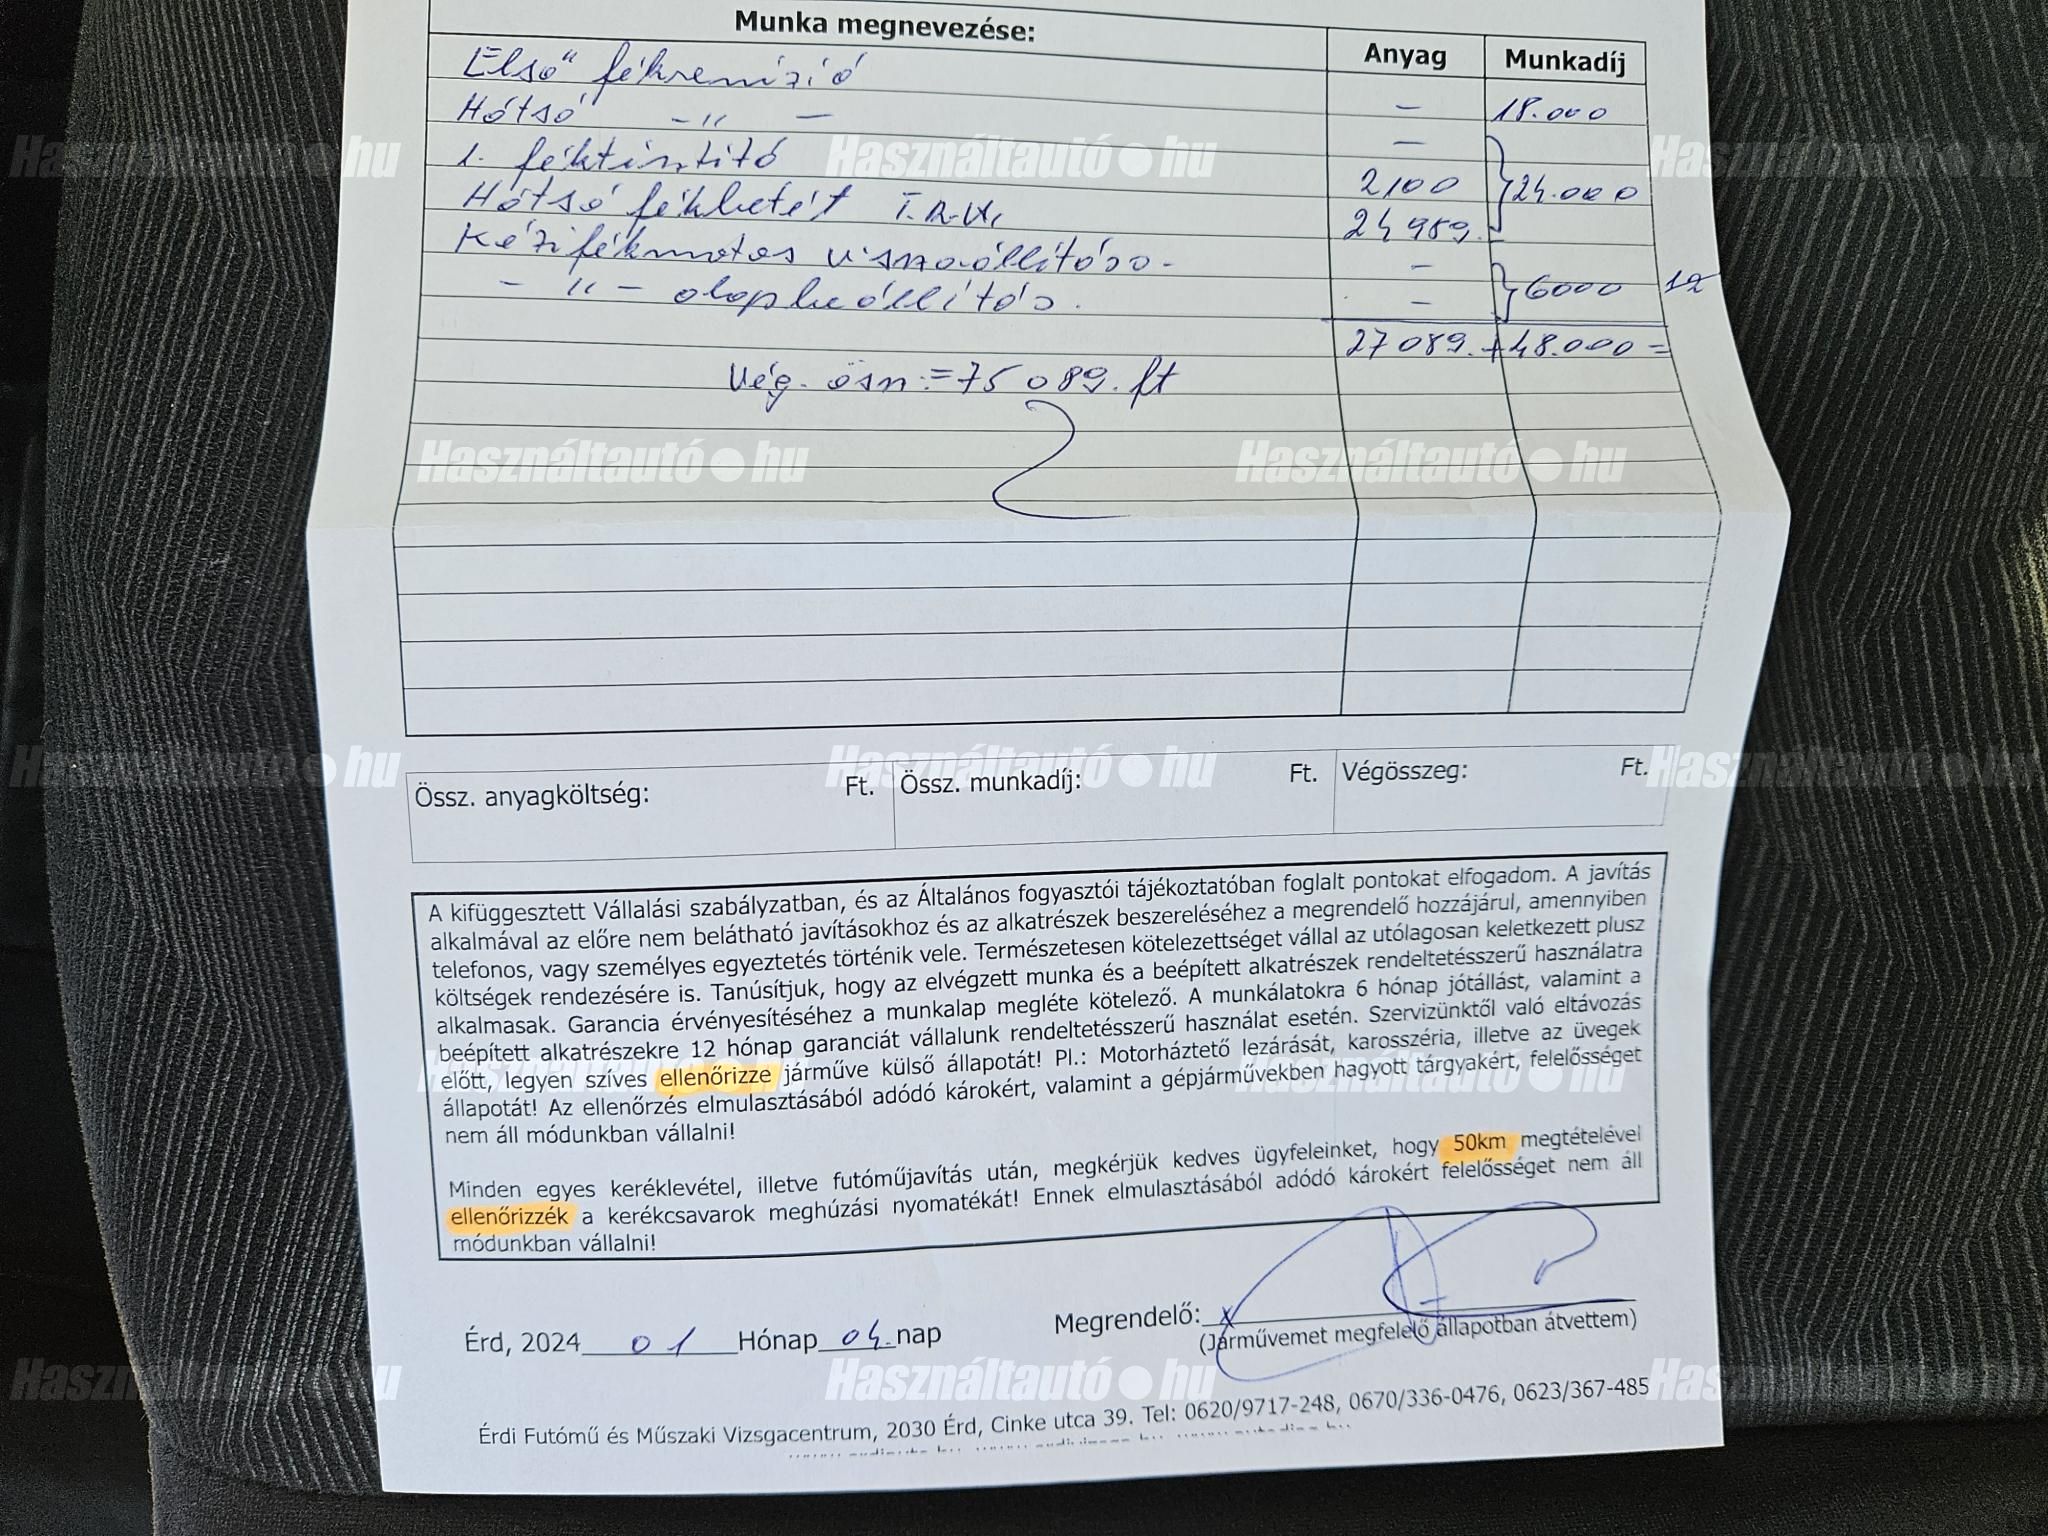 Munka megnevezése: Anyag Munkadíj
Első fékrevizió – 18.000
Hátsó –〃– –
1. féktisztító 2100 24.000
Hátsó fékbetét T.R.W. 24989.-
Kézifékmotos visszaállítása - –
–〃– alapbeállítás. – 6000
27089.+48.000=
Vég. össz:=75089.ft
Össz. anyagköltség: Ft. Össz. munkadíj: Ft. Végösszeg: Ft.
A kifüggesztett Vállalási szabályzatban, és az Általános fogyasztói tájékoztatóban foglalt pontokat elfogadom. A javítás
alkalmával az előre nem belátható javításokhoz és az alkatrészek beszereléséhez a megrendelő hozzájárul, amennyiben
telefonos, vagy személyes egyeztetés történik vele. Természetesen kötelezettséget vállal az utólagosan keletkezett plusz
költségek rendezésére is. Tanúsítjuk, hogy az elvégzett munka és a beépített alkatrészek rendeltetésszerű használatra
alkalmasak. Garancia érvényesítéséhez a munkalap megléte kötelező. A munkálatokra 6 hónap jótállást, valamint a
beépített alkatrészekre 12 hónap garanciát vállalunk rendeltetésszerű használat esetén. Szervizünktől való eltávozás
előtt, legyen szíves ellenőrizze járműve külső állapotát! Pl.: Motorháztető lezárását, karosszéria, illetve az üvegek
állapotát! Az ellenőrzés elmulasztásából adódó károkért, valamint a gépjárművekben hagyott tárgyakért, felelősséget
nem áll módunkban vállalni!
Minden egyes keréklevétel, illetve futóműjavítás után, megkérjük kedves ügyfeleinket, hogy 50km megtételével
ellenőrizzék a kerékcsavarok meghúzási nyomatékát! Ennek elmulasztásából adódó károkért felelősséget nem áll
módunkban vállalni!
Érd, 2024 01 Hónap 04. nap
Megrendelő: x
(Járművemet megfelelő állapotban átvettem)
Érdi Futómű és Műszaki Vizsgacentrum, 2030 Érd, Cinke utca 39. Tel: 0620/9717-248, 0670/336-0476, 0623/367-485
Használtautó.hu